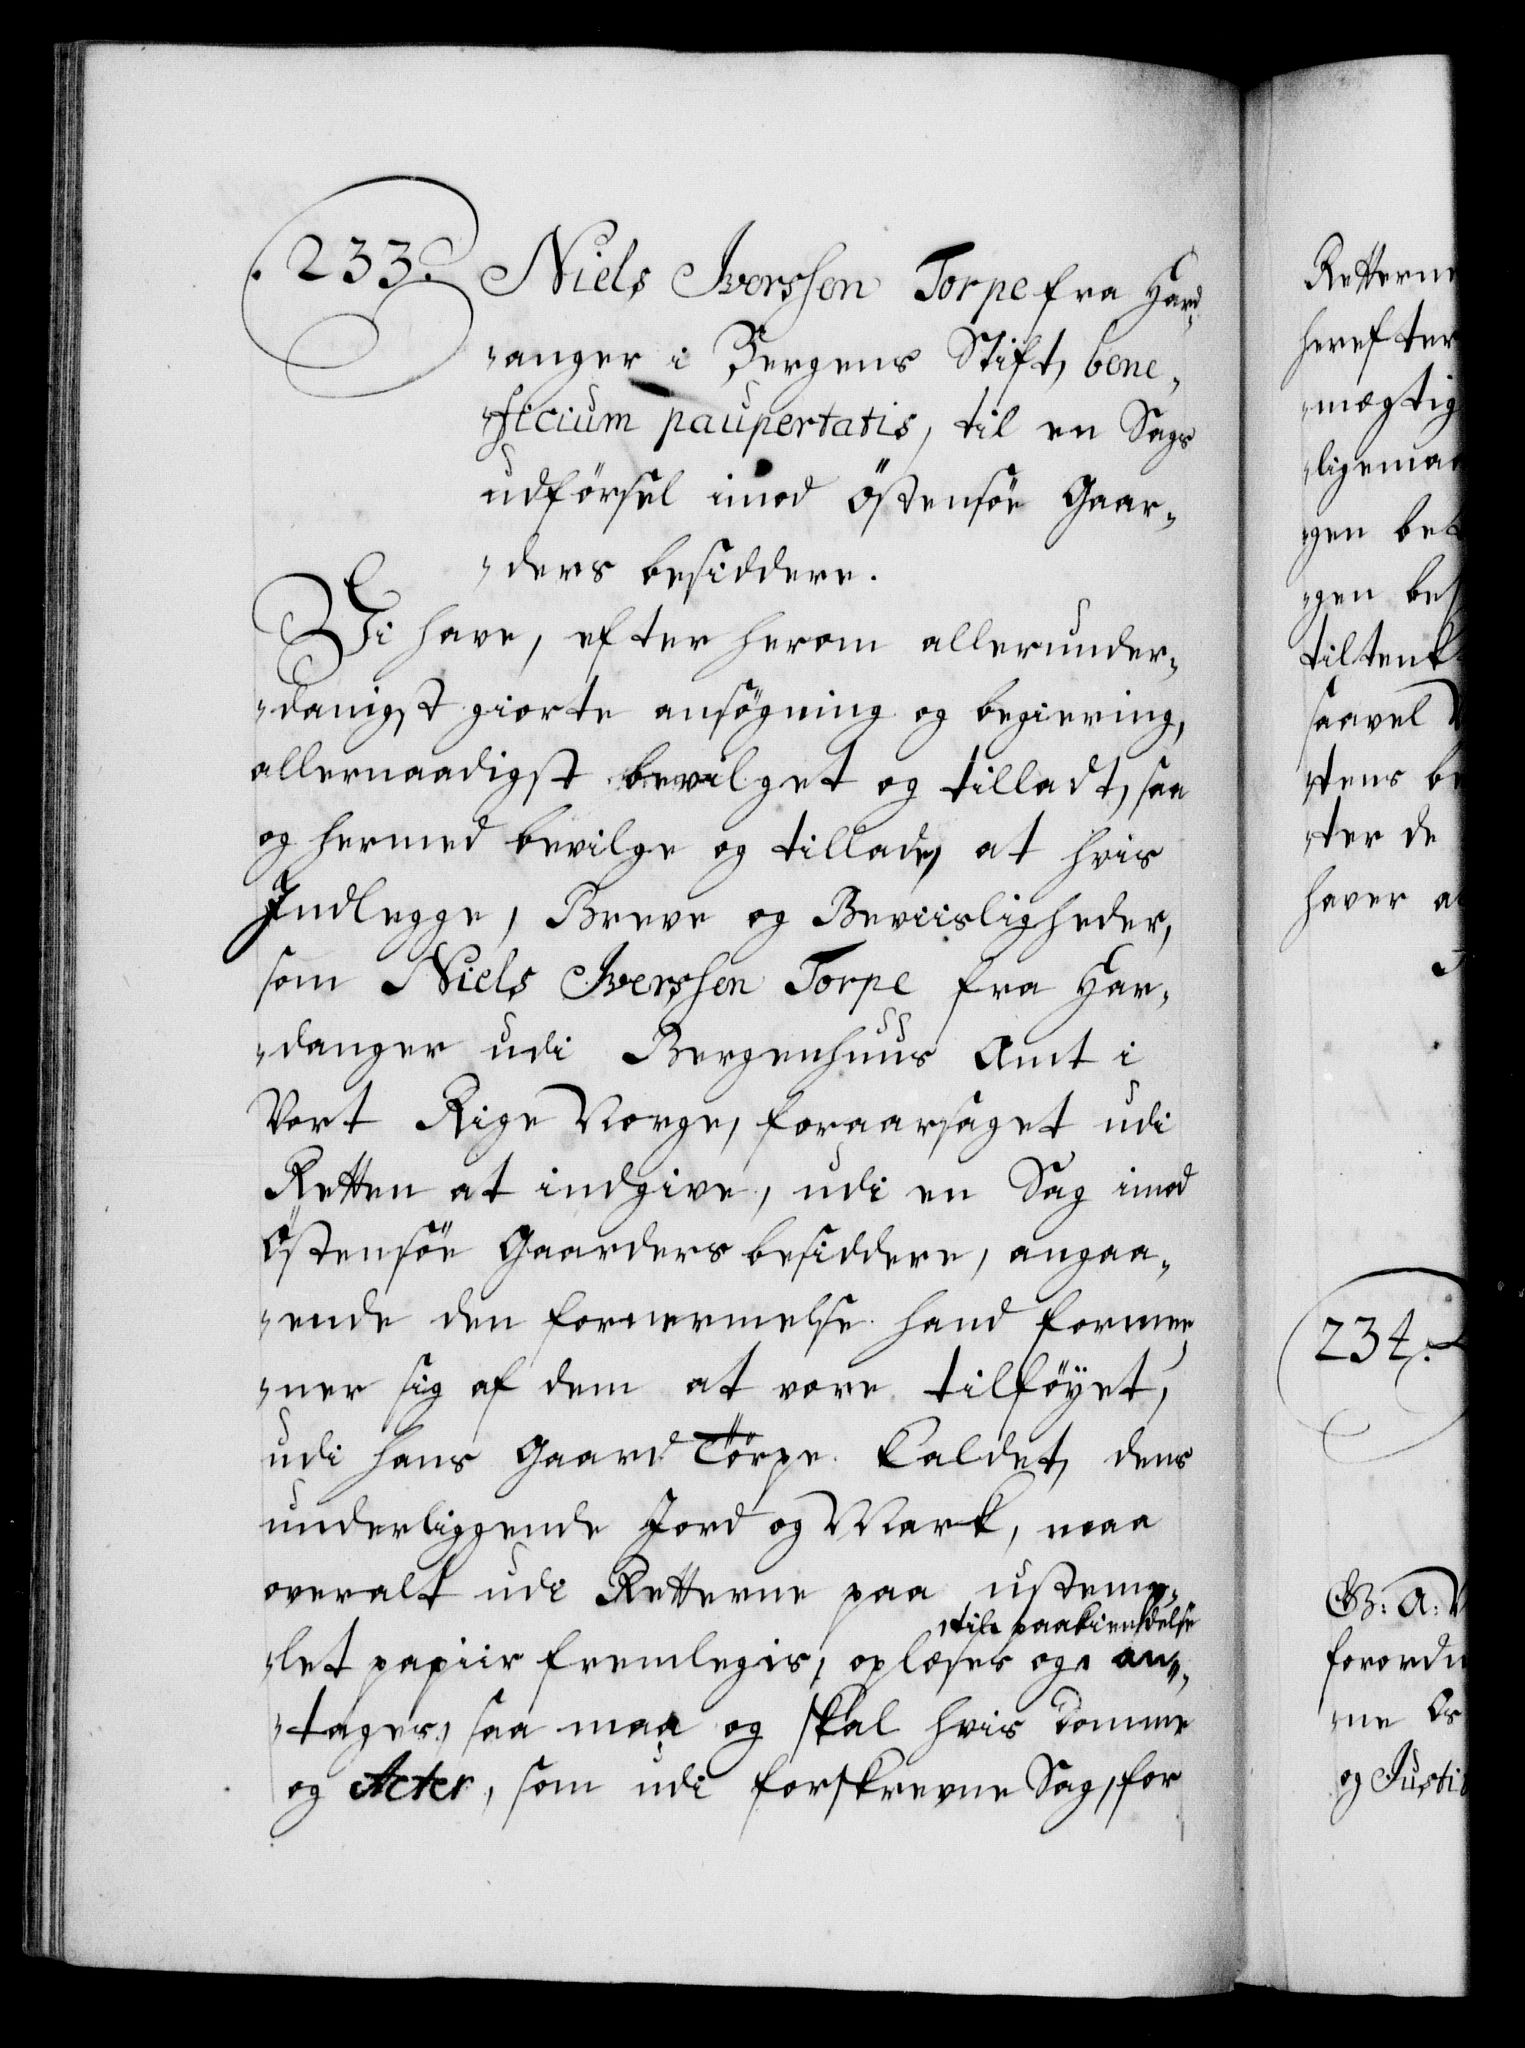 .233. Niels Iverssen Torpe fra Hard-
-anger i Bergens Stift, bene-
-ficium paupertatis, til en Sags
udførsel imod Östensöe Gaar-
-ders besiddere.
Vi have, efter herom allerunder-
-danigst giorte ansøgning og begiering,
allernaadigst bevilget og tilladt, saa
og hermed bevilge og tillade, at hvis
Indlegge, Breve og Beviisligheder,
som Niels Iverssen Torpe fra Har-
-danger udi Bergenhuus Amt i
Vort Rige Norge, foraarsaget udi
Retten at indgive, udi en Sag imod
Östensöe Gaarders besiddere, angaa-
-ende den fornermelse hand formee-
-ner sig af dem at vere tilföyet,
udi hans Gaard Törpe kaldet, dens
underliggende Jord og Mark, maa
overalt udi Retterne paa ustemp-
til paakiendelse
-let papiir fremlegis, oplæses og an-
-tages, saa maa og skal hvis Domme
og Acter, som udi forskrevne Sag, for
Retterne
herefter
-mægtig
-ligemaa
-gen
-gen
tiltenk
saavel
-stens be
-ter de
haver
234.
G: A: V
forordn
-ne
og Justi